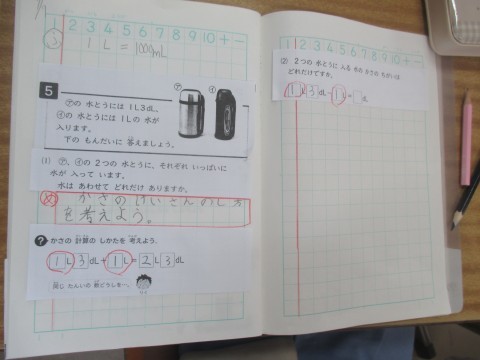 1 2 3 4 5 6 7 8 9 10 + −
③ 1L = 1000mL
5
㋐ ㋑
㋐の 水とうには 1L3dL、
㋑の 水とうには 1Lの 水が
入ります。
下の もんだいに 答えましょう。
(1) ㋐、㋑の 2つの 水とうに、それぞれ いっぱいに
水が 入って います。
水は あわせて どれだけ ありますか。
め かさのけいさんのし方
を考えよう。
? かさの 計算の しかたを 考えよう。
1L3dL+1L=2L3dL
同じ たんいの 数どうしを…。
1 2 3 4 5 6 7 8 9 10 + −
(2) 2つの 水とうに 入る 水の かさの ちがいは
どれだけですか。
1L3dL−1L=□dL